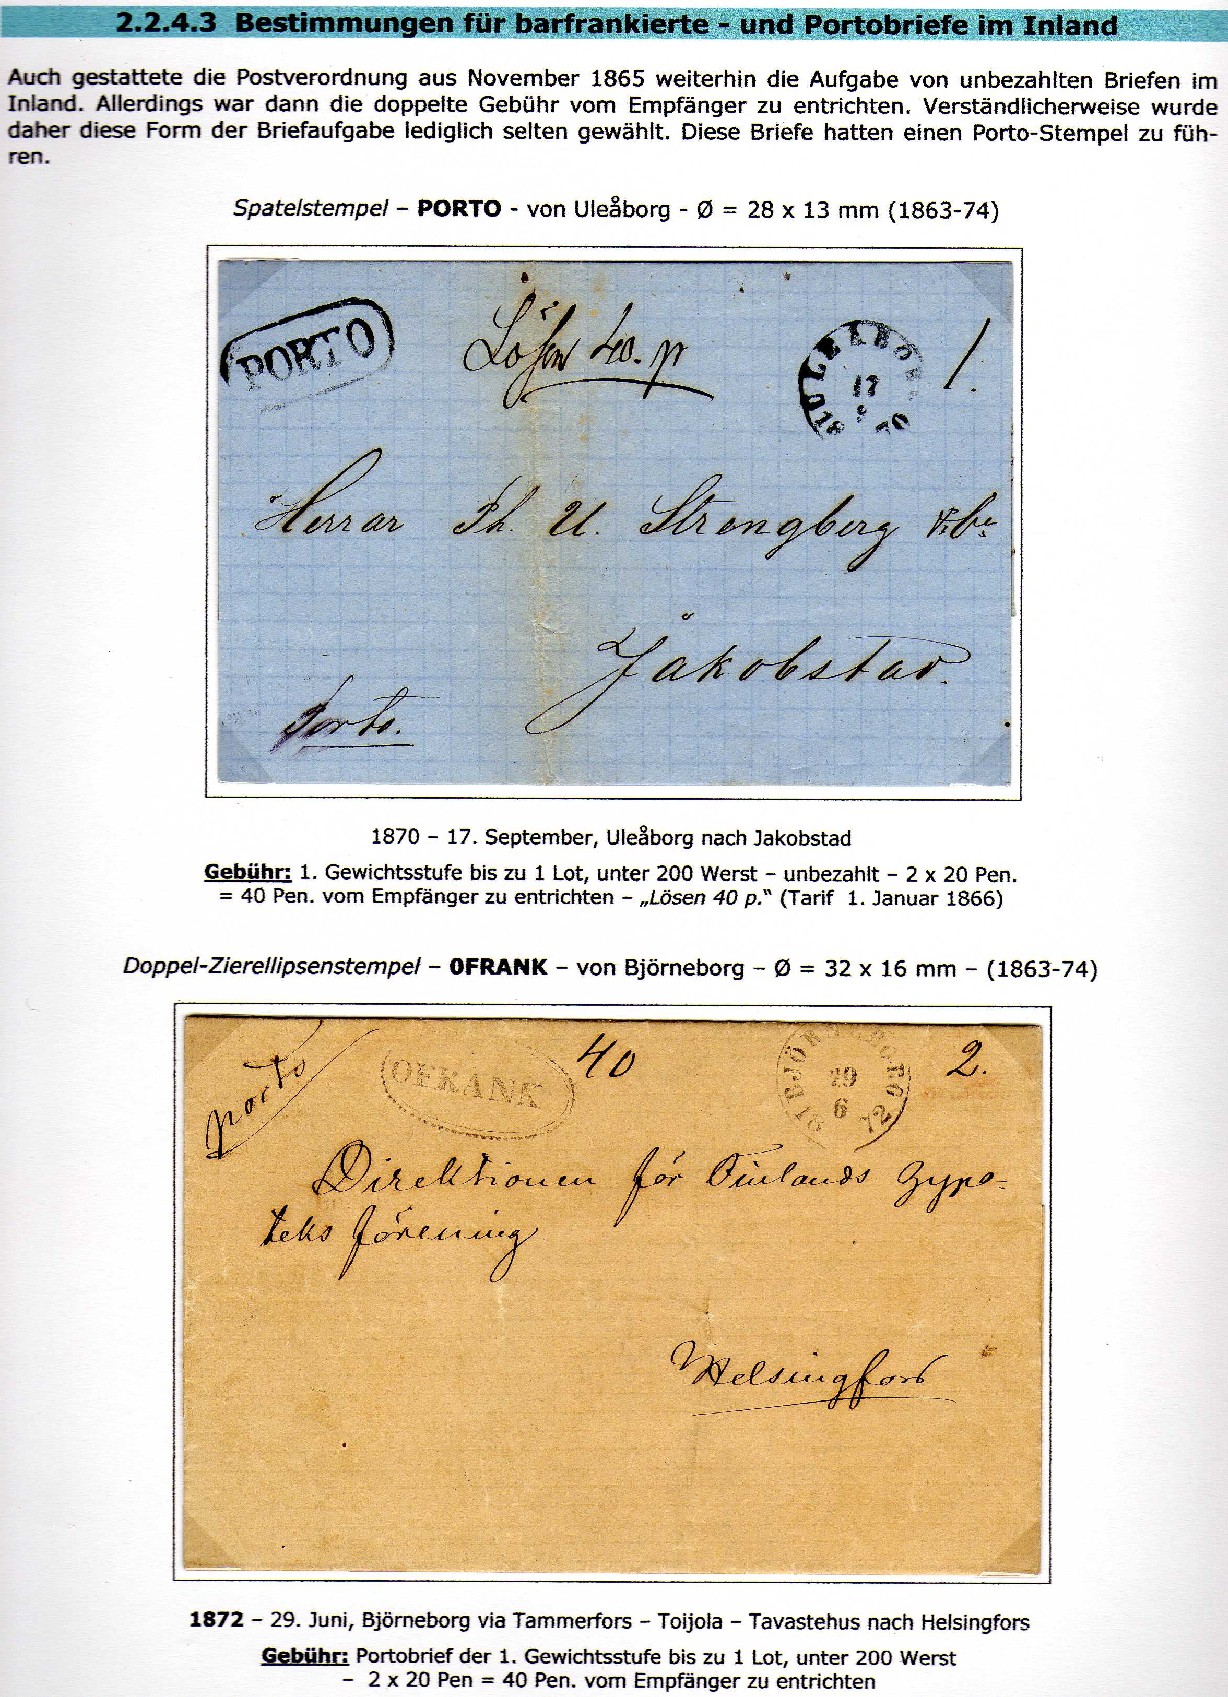 2.2.4.3 Bestimmungen für barfrankierte - und Portobriefe im Inland
Auch gestattete die Postverordnung aus November 1865 weiterhin die Aufgabe von unbezahlten Briefen im
Inland. Allerdings war dann die doppelte Gebühr vom Empfänger zu entrichten. Verständlicherweise wurde
daher diese Form der Briefaufgabe lediglich selten gewählt. Diese Briefe hatten einen Porto-Stempel zu füh-
ren.
Spatelstempel – PORTO - von Uleåborg - Ø = 28 x 13 mm (1863-74)
PORTO
Lösen 40. p
ULEÅBORG
17
1.
Herrar Ph. U. Strengberg &
Jakobstad.
Porto.
1870 – 17. September, Uleåborg nach Jakobstad
Gebühr: 1. Gewichtsstufe bis zu 1 Lot, unter 200 Werst – unbezahlt – 2 x 20 Pen.
= 40 Pen. vom Empfänger zu entrichten – „Lösen 40 p." (Tarif 1. Januar 1866)
Doppel-Zierellipsenstempel – OFRANK – von Björneborg – Ø = 32 x 16 mm – (1863-74)
porto
OFRANK
40
BJÖRNEBORG
29
6
72
2.
Direktionen för Finlands Hypo-
teks förening
Helsingfors
1872 – 29. Juni, Björneborg via Tammerfors – Toijola – Tavastehus nach Helsingfors
Gebühr: Portobrief der 1. Gewichtsstufe bis zu 1 Lot, unter 200 Werst
– 2 x 20 Pen = 40 Pen. vom Empfänger zu entrichten